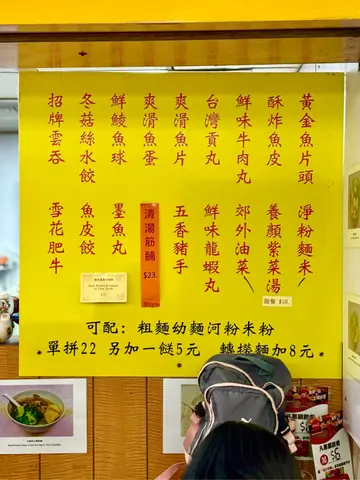 招牌雲吞
冬菇絲水餃
鮮鯪魚球
爽滑魚蛋
爽滑魚片
台灣貢丸
鮮味牛肉丸
酥炸魚皮
黃金魚片頭
雪花肥牛
魚皮餃
墨魚丸
清湯筋腩
$23.
五香豬手
鮮味龍蝦丸
郊外油菜
養顏紫菜湯
淨粉麵米
跟餐 $10.
可配：粗麵幼麵河粉米粉
單拼22 另加一餸5元 轉撈麵加8元